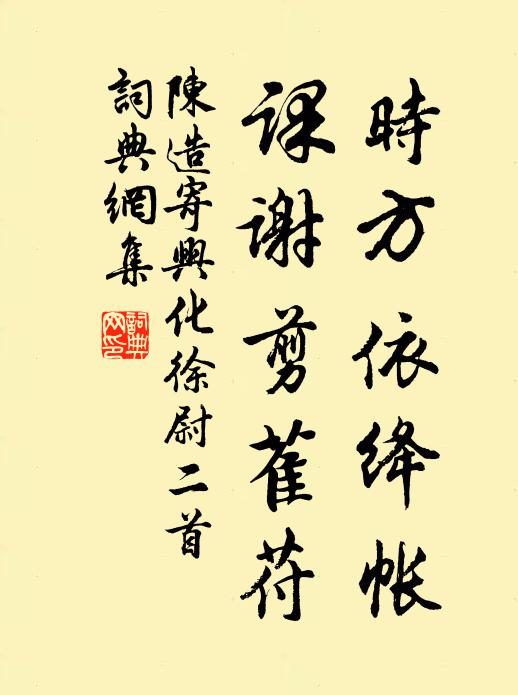 時方依绛帐
课谢剪萑苻
陳造寄興化徐尉二首
詞典網集
詞典網印